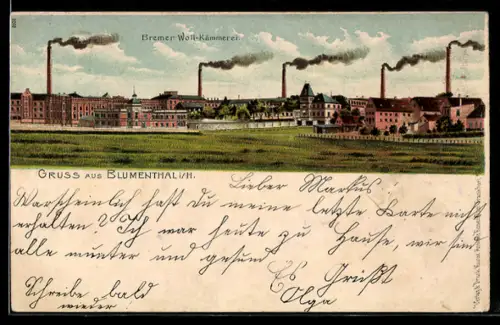 Bremer Woll-Kämmerei.
GRUSS AUS BLUMENTHAL i/H.
Lieber Markus
Warscheinlich hast Du meine letzte Karte nicht
erhalten? Ich war heute zu Hause, wir sin
alle munter und gesund.
Es Grüßt
Olga
Schreibe bald
wieder